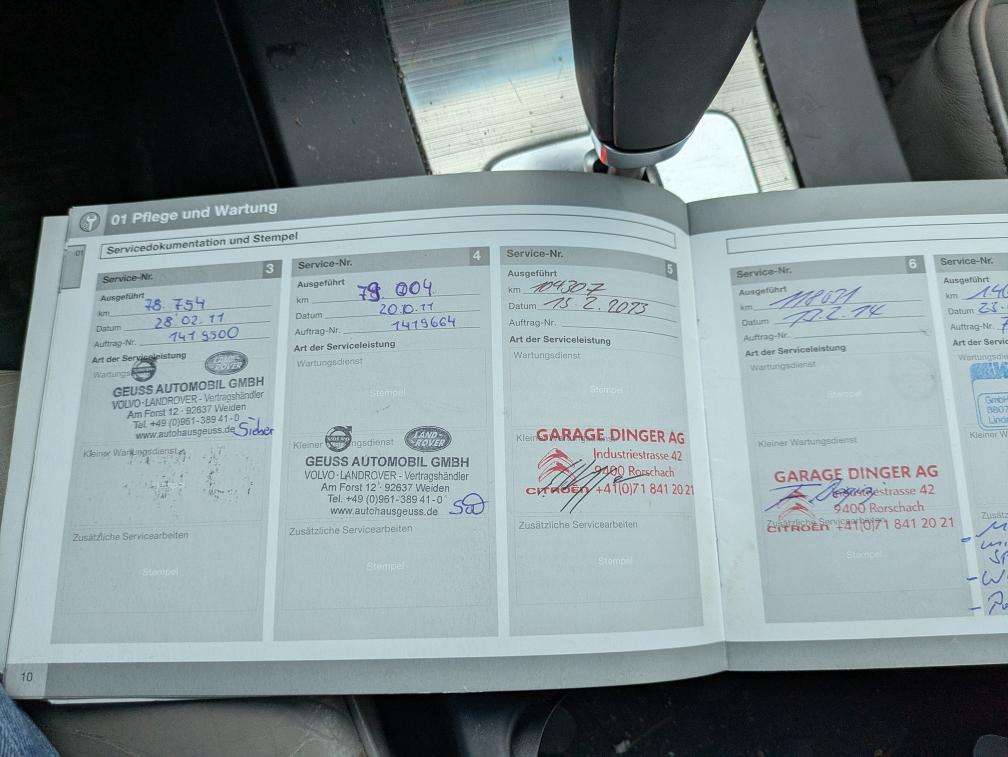 01 Pflege und Wartung
01
Servicedokumentation und Stempel
Service-Nr. 3
Ausgeführt
km 78.754
Datum 28.02.11
Auftrag-Nr. 1419500
Art der Serviceleistung
Wartungsdienst
LAND ROVER
GEUSS AUTOMOBIL GMBH
VOLVO·LANDROVER - Vertragshändler
Am Forst 12 · 92637 Weiden
Tel. +49 (0)961-389 41-0
www.autohausgeuss.de
Kleiner Wartungsdienst
Zusätzliche Servicearbeiten
Stempel
10
Service-Nr. 4
Ausgeführt
km 79.004
Datum
Auftrag-Nr. 1419664
Art der Serviceleistung
Wartungsdienst
Stempel
Kleiner Wartungsdienst
LAND ROVER
GEUSS AUTOMOBIL GMBH
VOLVO·LANDROVER - Vertragshändler
Am Forst 12 · 92637 Weiden
Tel. +49 (0)961-389 41-0
www.autohausgeuss.de
Zusätzliche Servicearbeiten
Stempel
Service-Nr. 5
Ausgeführt
km 104307
Datum 15.2.2013
Auftrag-Nr.
Art der Serviceleistung
Wartungsdienst
Stempel
Kleiner Wartungsdienst
GARAGE DINGER AG
Industriestrasse 42
9400 Rorschach
CITROËN +41(0)71 841 20 21
Zusätzliche Servicearbeiten
Stempel
Service-Nr. 6
Ausgeführt
km
Datum
Auftrag-Nr.
Art der Serviceleistung
Wartungsdienst
Kleiner Wartungsdienst
GARAGE DINGER AG
Industriestrasse 42
9400 Rorschach
CITROËN +41(0)71 841 20 21
Zusätzliche Servicearbeiten
Stempel
Service-Nr.
Ausgeführt
km
Datum
Auftrag-Nr.
Art der
GmbH